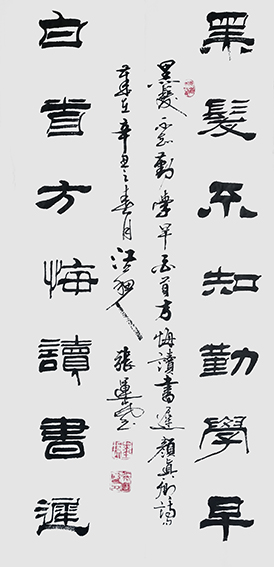 黑髮不知勤學早
黑髮不知勤學早白首方悔讀書遲顏真卿詩
歲在辛丑之春月
白首方悔讀書遲